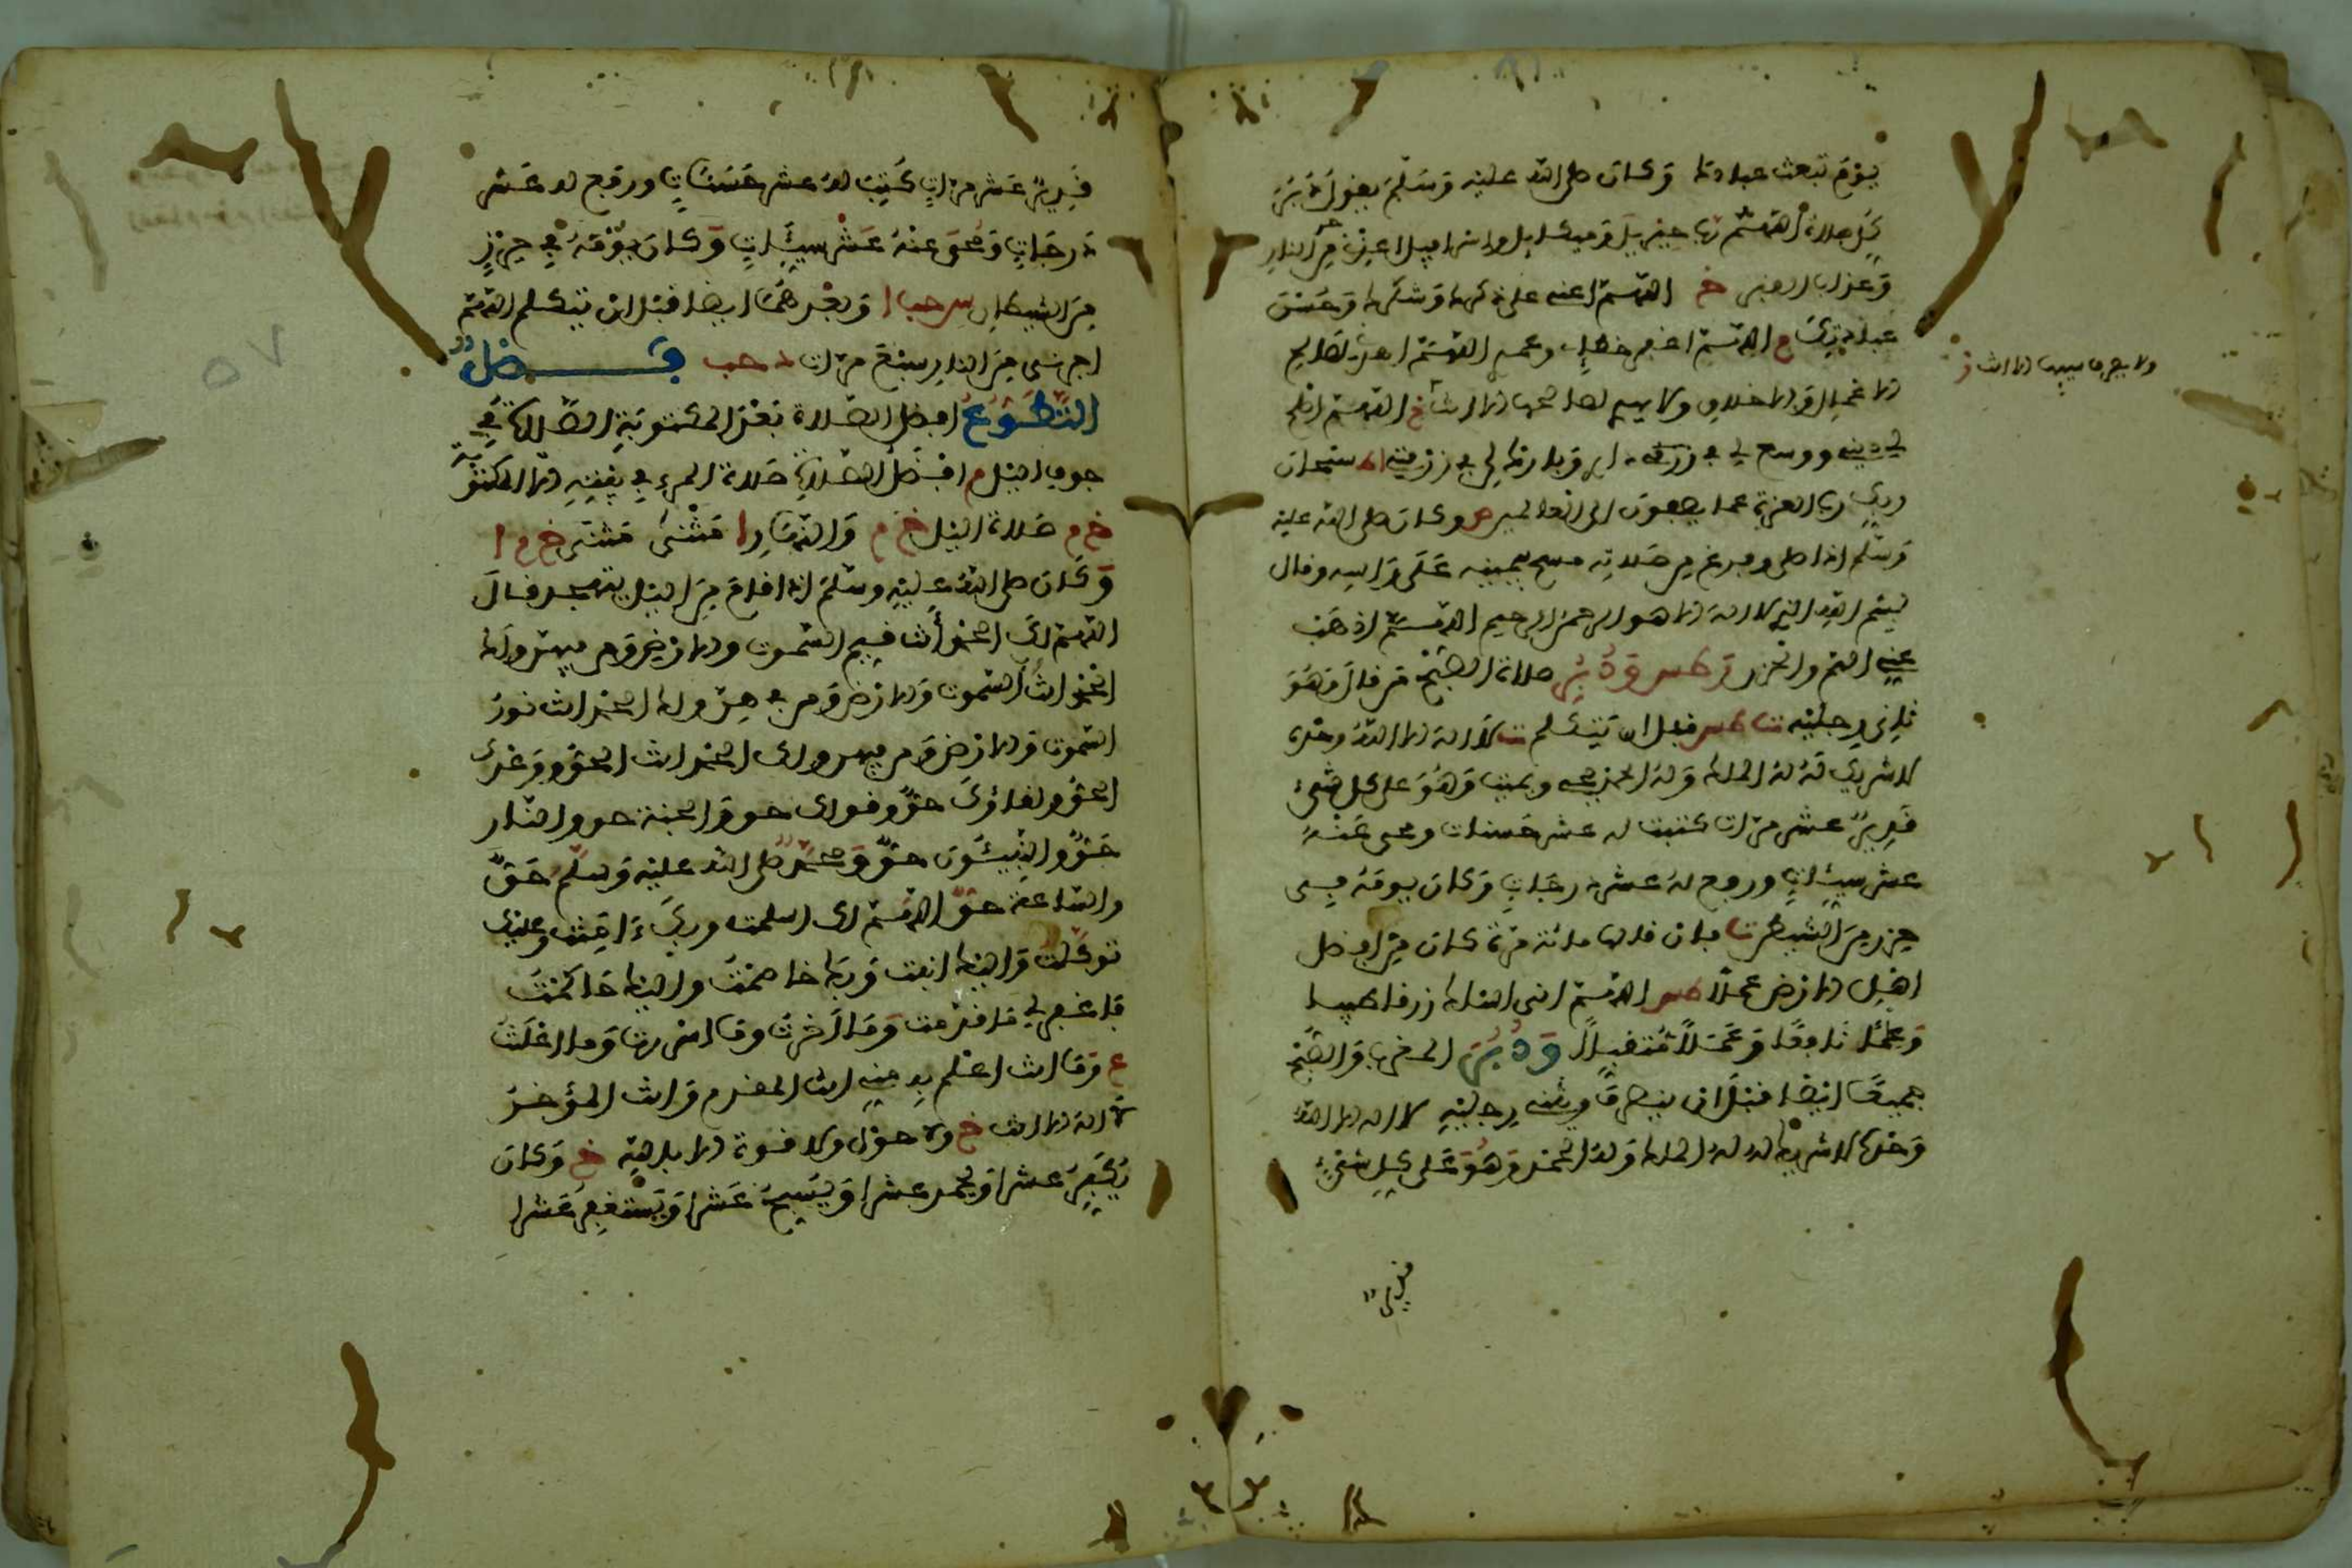 يوم تبعث عبادك وكان صلى الله عليه وسلم يقول دبر
كل صلاة اللهم رب جبريل وميكايل وإسرافيل أعذني من حر النار
وعذاب القبر خ اللهم أعني على ذكرك وشكرك وحسن
عبادتك م اللهم اغفر خطئي وعمدي اللهم اهدني لصالح
الأعمال والأخلاق ولا يهدي لصالحها إلا أنت خ اللهم أصلح
لي ديني ووسع لي في داري وبارك لي في رزقي سبحان
ربك رب العزة عما يصفون إلى العالمين وكان صلى الله عليه
وسلم إذا صلى وفرغ من صلاته مسح بيمينه على رأسه وقال
بسم الله الذي لا إله إلا هو الرحمن الرحيم اللهم أذهب
عني الهم والحزن ودبر صلاة الصبح من قال وهو
ثاني رجليه قبل أن يتكلم لا إله إلا الله وحده
لا شريك له له الملك وله الحمد يحيي ويميت وهو على كل شيء
قدير عشر مرات كتبت له عشر حسنات ومحي عنه
عشر سيئات ورفع له عشر درجات وكان يومه في
حرز من الشيطان فإن قالها مائة مرة كان من أفضل
أهل الأرض عملا اللهم إني أسألك رزقا طيبا
وعلما نافعا وعملا متقبلا ودبر المغرب والصبح
جميعا أيضا قبل أن ينصرف ويثني رجليه لا إله إلا الله
وحده لا شريك له له الملك وله الحمد وهو على كل شيء
قدير
ولا يصرف سيئها إلا أنت
قدير عشر مرات كتب له عشر حسنات ورفع له عشر
درجات ومحي عنه عشر سيئات وكان يومه في حرز
من الشيطان س حب ا وبعدهما أيضا قبل أن يتكلم اللهم
أجرني من النار سبع مرات د حب فضل
التطوع أفضل الصلاة بعد المكتوبة الصلاة في
جوف الليل م أفضل الصلاة صلاة المرء في بيته إلا المكتوبة
خ م صلاة الليل خ م والنهار ا مثنى مثنى خ م ا
وكان صلى الله عليه وسلم إذا قام من الليل يتهجد قال
اللهم لك الحمد أنت قيم السموت والأرض ومن فيهن ولك
الحمد أنت السموت والأرض ومن فيهن ولك الحمد أنت نور
السموت والأرض ومن فيهن ولك الحمد أنت الحق ووعدك
الحق ولقاؤك حق وقولك حق والجنة حق والنار
حق والنبيئون حق ومحمد صلى الله عليه وسلم حق
والساعة حق اللهم لك أسلمت وبك ءامنت وعليك
توكلت وإليك أنبت وبك خاصمت وإليك حاكمت
فاغفر لي ما قدمت وما أخرت وما أسررت وما أعلنت
ع وما أنت أعلم به مني أنت المقدم وأنت المؤخر
لا إله إلا أنت خ ولا حول ولا قوة إلا بالله خ وكان
يكبر عشرا ويحمد عشرا ويسبح عشرا ويستغفر عشرا